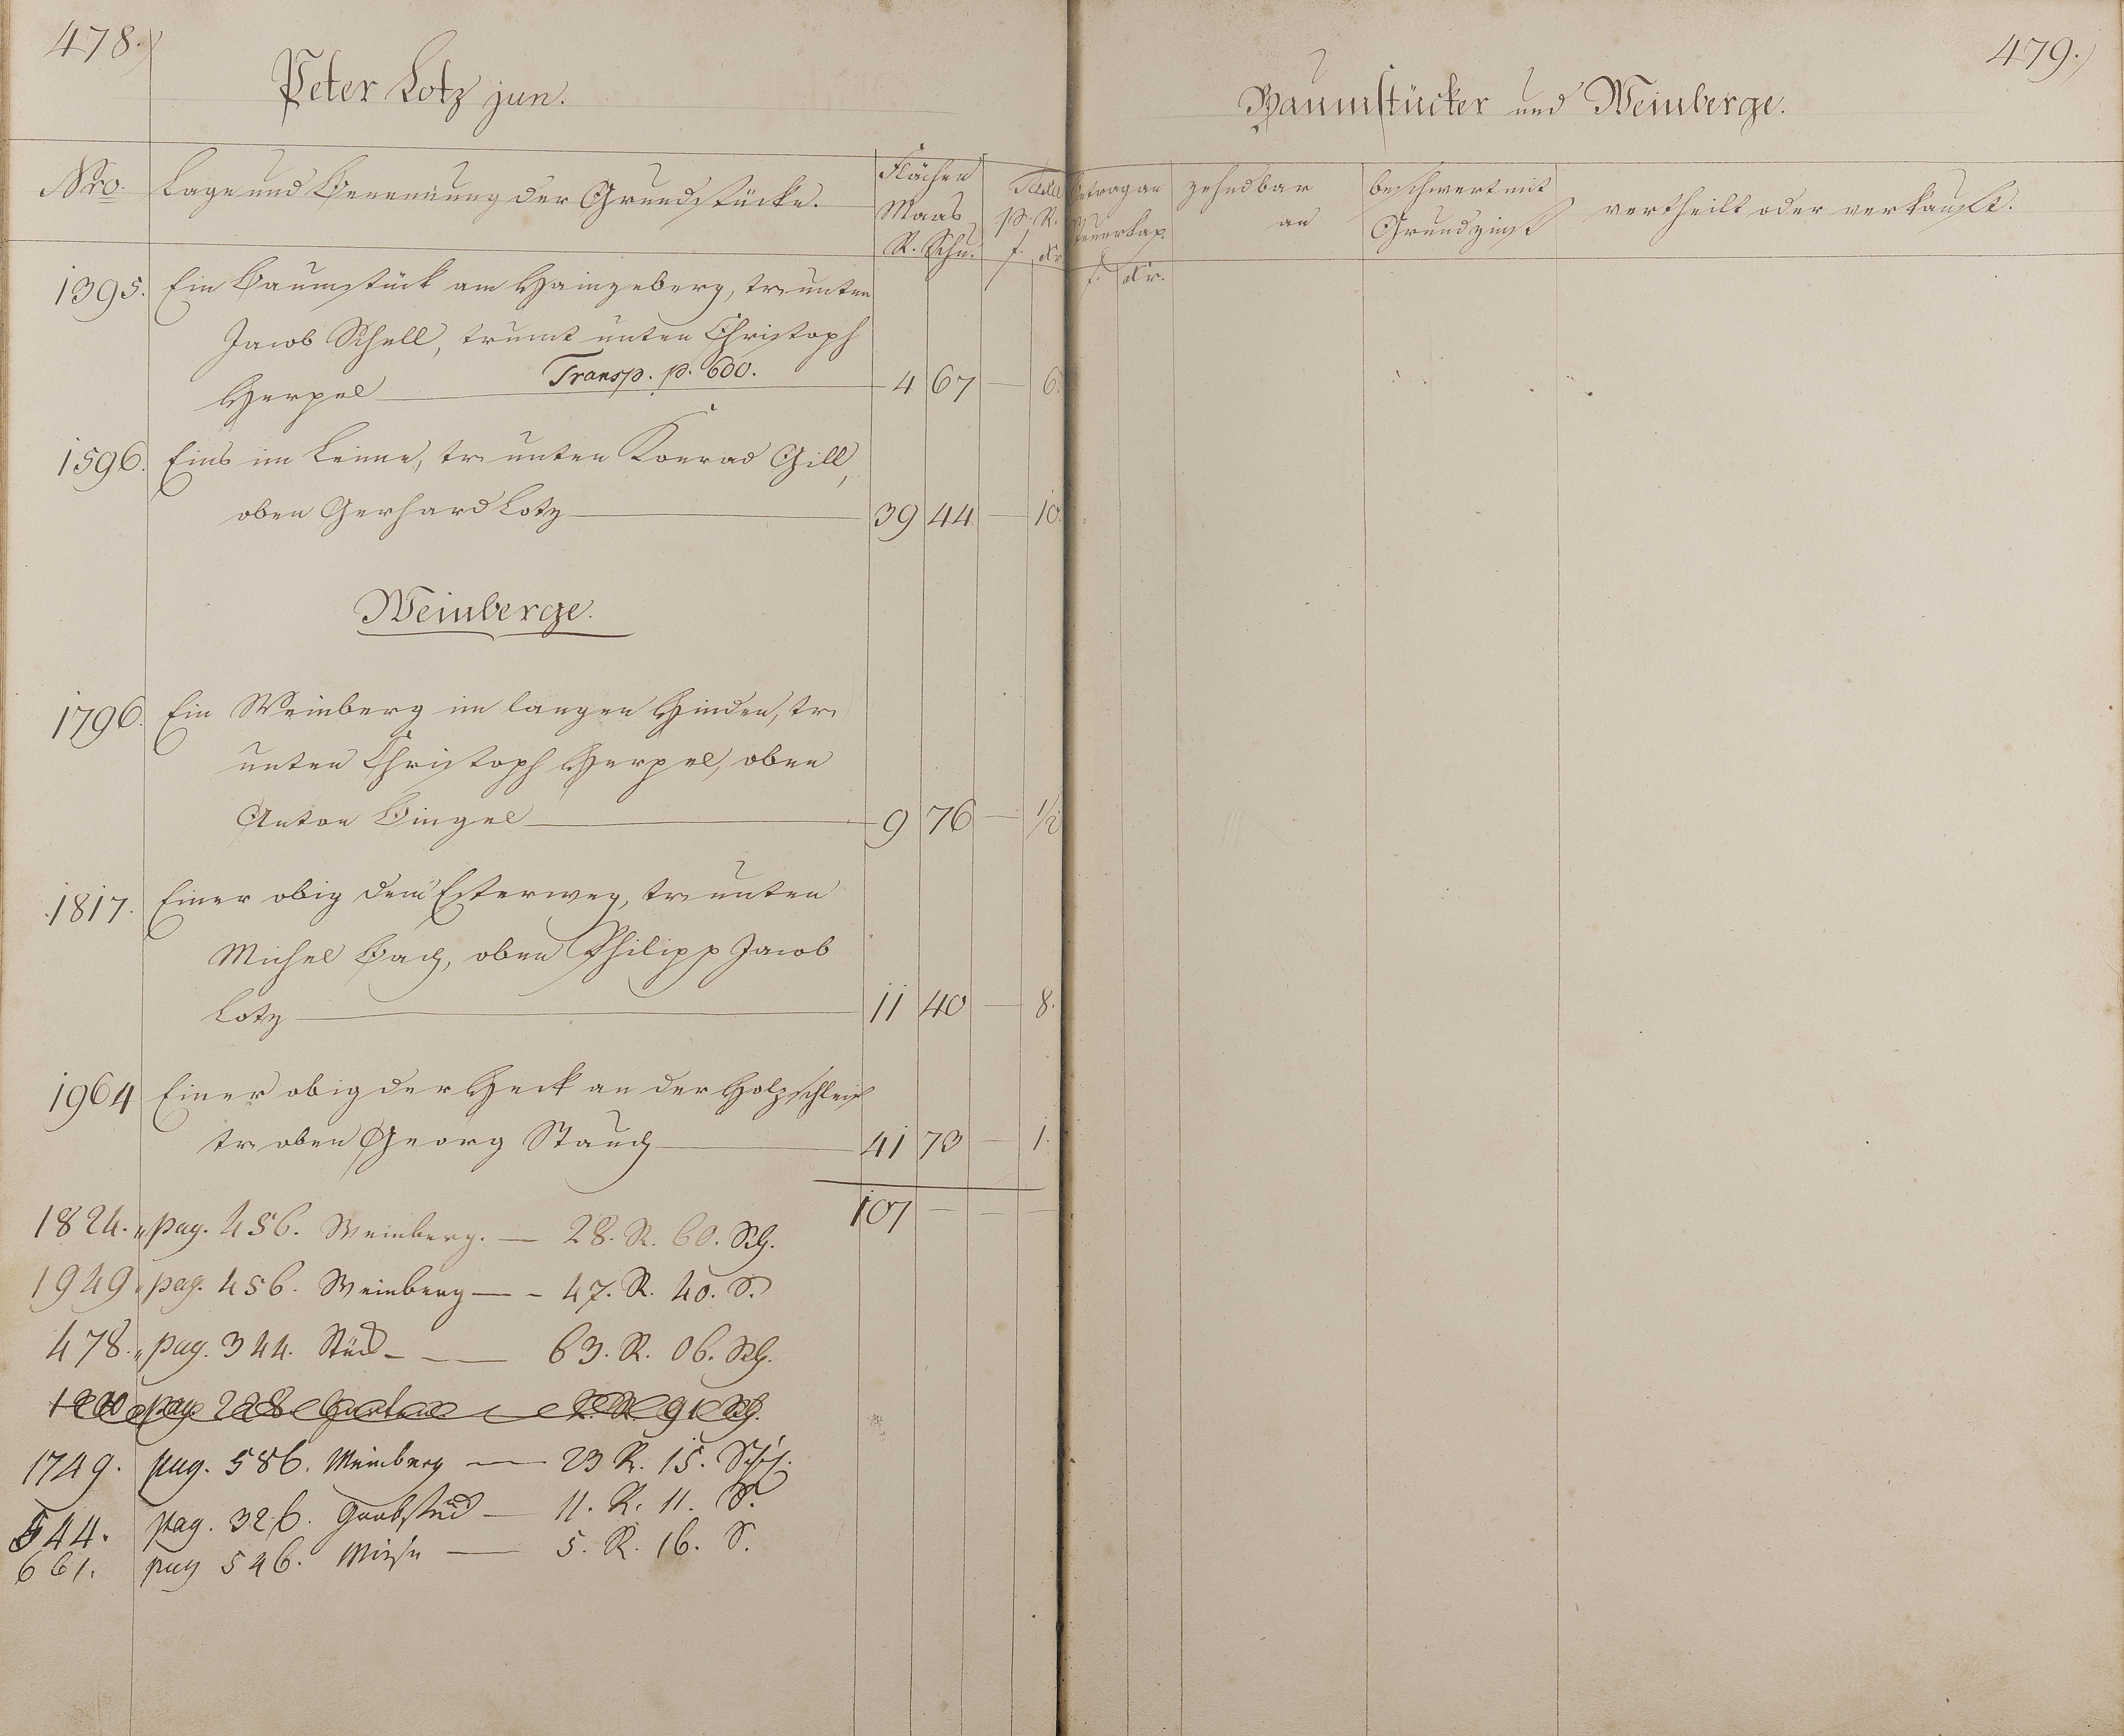 478.)
Peter Lotz jun.
Nro. Lage und Benennung der Grundstücke. Flächen Maas R. Schu. p. R. f. Kr.
1395. Ein Baumstück am Hainzeberg, tr. unten
Jacob Schell, trennt unten Christoph
Transp. p. 600.
Herpel — 4 67 — 6.
1596. Eins im Leime, tr. unten Konrad Gill,
oben Gerhard Lotz — 39 44 — 10.
Weinberge.
1796. Ein Weinberg im langen Hinden, tr.
unten Christoph Herpel, oben
Anton Bingel — 9 76 — 1/2
1817. Einer obig dem Esterweg, tr. unten
Michel Bach, oben Philipp Jacob
Lotz — 11 40 — 8.
1964 Einer obig der Heck an der Holzschleif
tr. oben Georg Stauch — 41 73 — 1.
107 — — —
1824. „ pag. 456. Weinberg. — 28. R. 60. Sch.
1949 „ pag. 456. Weinberg — - 47. R. 40. S.
478. „ pag. 344. Stück - — 63. R. 06. Sch.
pag 228 Garten — R. 91 Sch.
1749. pag. 586. Weinberg — 23 R. 15. Sch.
544. pag. 326. Grabstück — 11. R. 11. S.
661. pag 546. Wiese — 5. R. 16. S.
479.)
Baumstücker und Weinberge.
Betrag an Steuerkap. f. Kr. zehndbar an beschwert mit Grundzinst vertheilt oder verkauft.